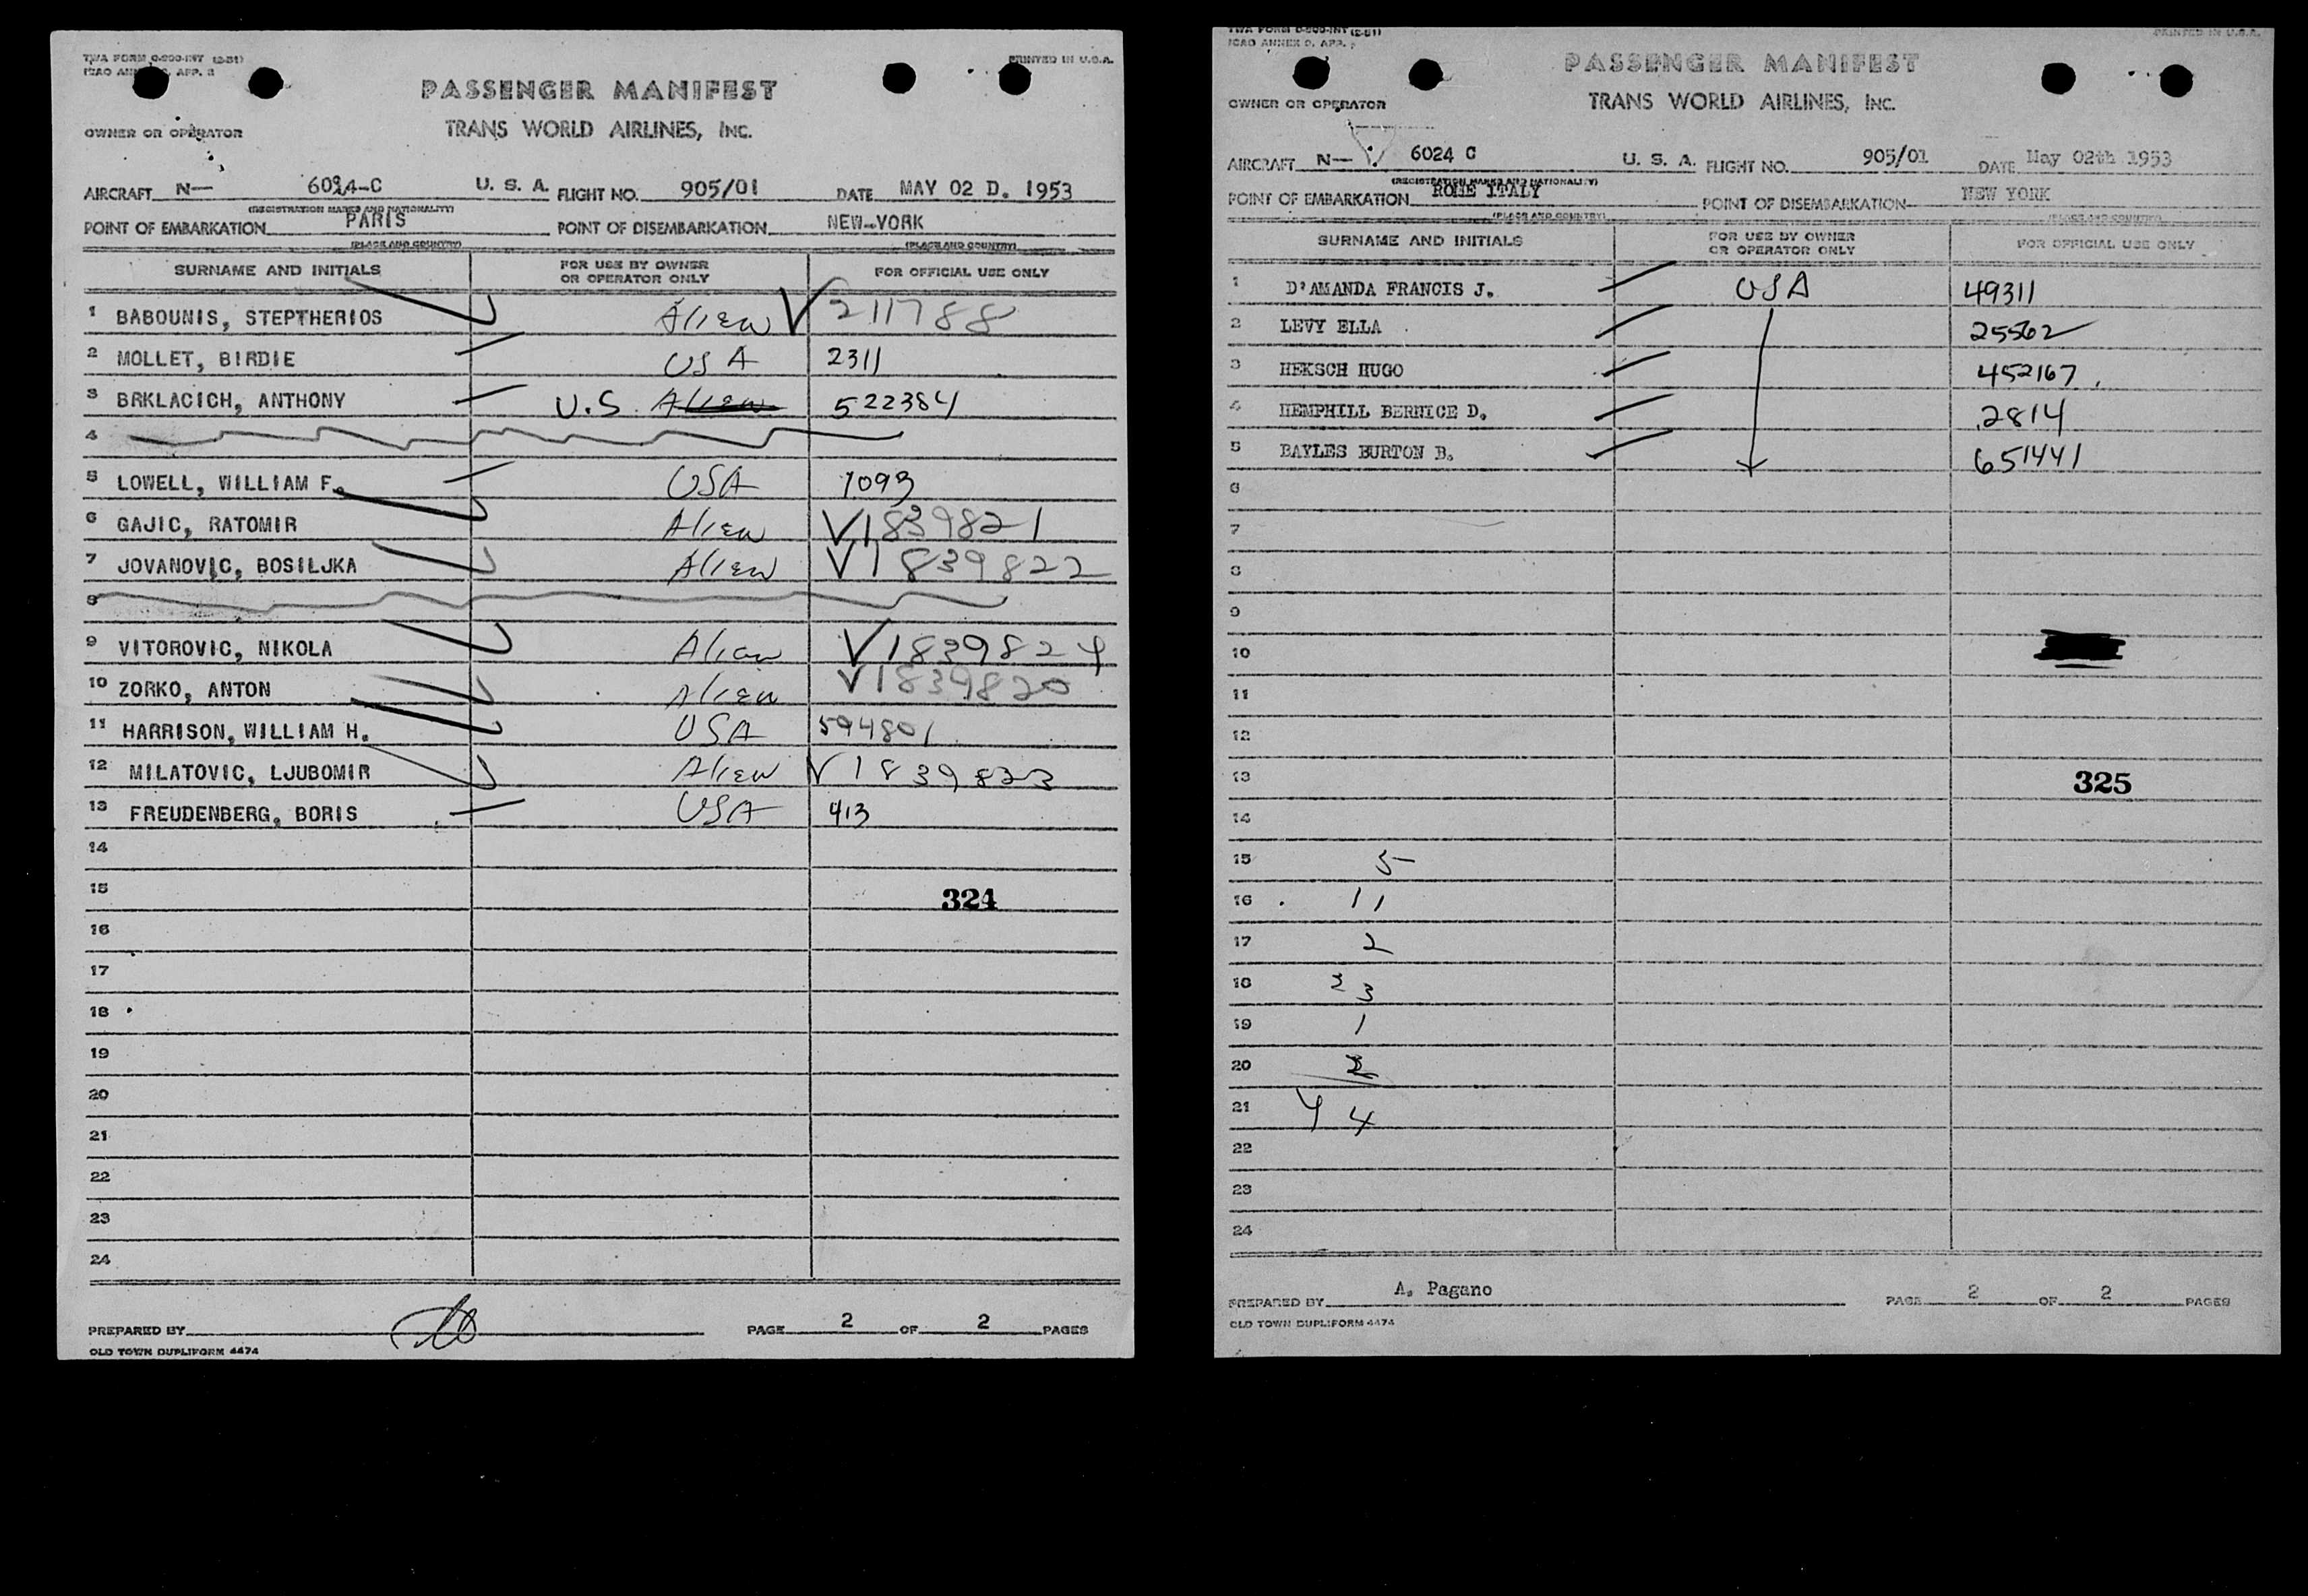 TWA FORM O-800-INT (2-51)
PRINTED IN U.S.A.
PASSENGER MANIFEST
OWNER OR OPERATOR
TRANS WORLD AIRLINES, INC.
AIRCRAFT N— U. S. A. FLIGHT NO. 905/01 DATE MAY 02 D. 1953
(REGISTRATION MARKS AND NATIONALITY)
POINT OF EMBARKATION PARIS POINT OF DISEMBARKATION NEW-YORK
(PLACE AND COUNTRY) (PLACE AND COUNTRY)
SURNAME AND INITIALS FOR USE BY OWNER OR OPERATOR ONLY FOR OFFICIAL USE ONLY
1 BABOUNIS, STEPTHERIOS Alien V 211788
2 MOLLET, BIRDIE USA 2311
3 BRKLACICH, ANTHONY U.S. Alien 522384
4
5 LOWELL, WILLIAM F. USA 1093
6 GAJIC, RATOMIR Alien V1839821
7 JOVANOVIC, BOSILJKA Alien V1839822
8
9 VITOROVIC, NIKOLA Alien V1839824
10 ZORKO, ANTON Alien V1839820
11 HARRISON, WILLIAM H. USA 594801
12 MILATOVIC, LJUBOMIR Alien V1839823
13 FREUDENBERG, BORIS USA 413
14
15 324
16
17
18
19
20
21
22
23
24
PREPARED BY PAGE 2 OF 2 PAGES
OLD TOWN DUPLIFORM 4474
TWA FORM O-800-INT (2-51)
ICAO ANNEX 9, APP.
PRINTED IN U.S.A.
PASSENGER MANIFEST
OWNER OR OPERATOR
TRANS WORLD AIRLINES, INC.
AIRCRAFT N— 6024 C U. S. A. FLIGHT NO. 905/01 DATE May 02th 1953
(REGISTRATION MARKS AND NATIONALITY)
POINT OF EMBARKATION ROME ITALY POINT OF DISEMBARKATION NEW YORK
(PLACE AND COUNTRY) (PLACE AND COUNTRY)
SURNAME AND INITIALS FOR USE BY OWNER OR OPERATOR ONLY FOR OFFICIAL USE ONLY
1 D'AMANDA FRANCIS J. USA 49311
2 LEVY ELLA 25562
3 HEKSCH HUGO 452167
4 HEMPHILL BERNICE D. 2814
5 BAYLES BURTON B. 651441
6
7
8
9
10
11
12
13 325
14
15 5
16 11
17 2
18 23
19 1
20 2
21 44
22
23
24
PREPARED BY A. Pagano PAGE 2 OF 2 PAGES
OLD TOWN DUPLIFORM 4474